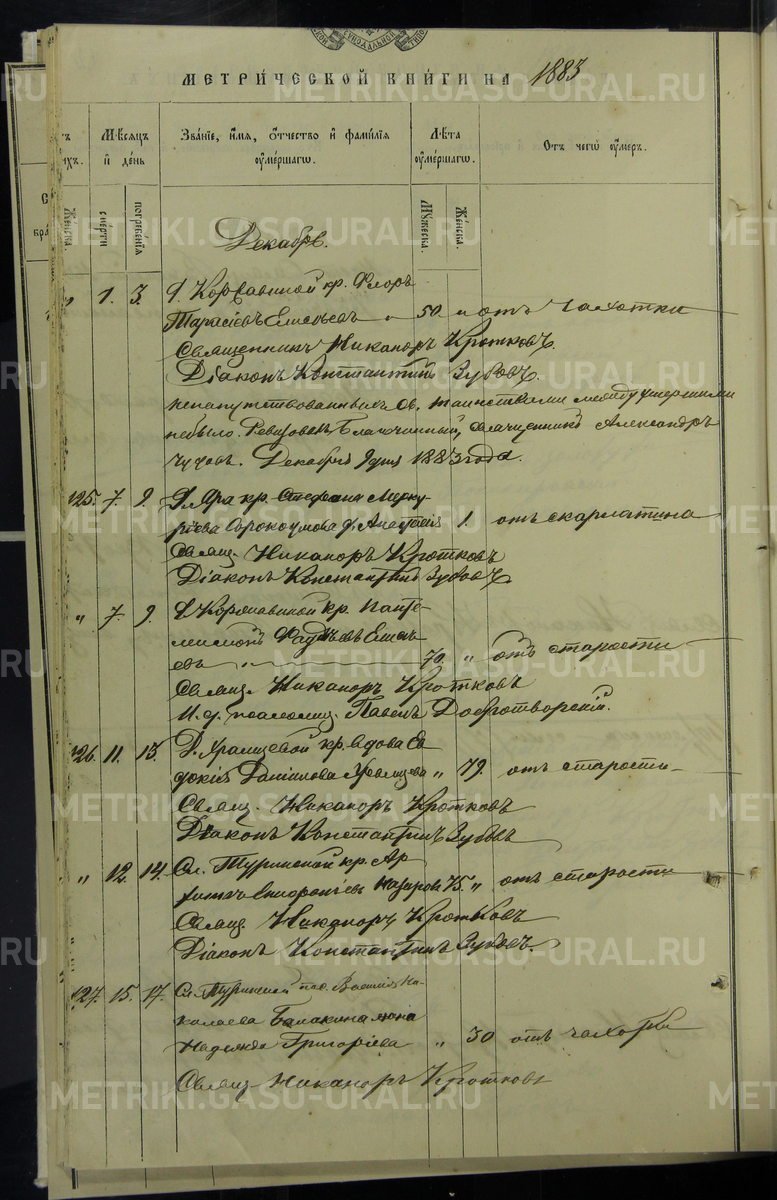 МЕТРИ́ЧЕСКОЙ КНИ́ГИ НА 1883
Мѣсяцъ и҆ де́нь
Зва́нїе, и҆́мѧ, ѻ҆́тчество и҆ фамі́лїѧ ᲂу҆ме́ршагѡ.
Лѣ́та ᲂу҆ме́ршагѡ.
Ѿ чегѡ̀ ᲂу҆́меръ.
Же́нска.
сме́рти
погребе́нїѧ
Мꙋ́жеска.
Же́нска.
Декабрь.
" 1. 3. Д. Корсавиной кр. Флоръ
Тарасіевъ Елисѣевъ " 50 " отъ чахотки
Священникъ Никаноръ Кротковъ.
Діаконъ Константинъ Зубовъ.
ненапутствованныхъ Св. таинствами между умершими
небыло. Ревизовалъ Благочинный, священникъ Александръ
Декабря 9 дня 1883 года.
125. 7. 9. кр. Стефана Мерку-
рьева Сорокоумова д. Анастасія 1. отъ скарлатина
Свящ. Никаноръ Кротковъ
Діаконъ Константинъ Зубовъ
" 7. 9. Д. Корсавиной кр. Панте-
леимонъ Фаддѣевъ Елисѣ-
евъ 70. " отъ старости
Свящ. Никаноръ Кротковъ
И. д. псаломщ. Павелъ Добротворскій.
126. 11. 13. Д. кр. вдова Ев-
докія Даніилова " 79. отъ старости
Свящ. Никаноръ Кротковъ
Діаконъ Константинъ Зубовъ
" 12. 14. Сл. Туринской кр.
Назаровъ 75. " отъ старости
Свящ. Никаноръ Кротковъ
Діаконъ Константинъ Зубовъ.
127. 15. 17. Сл. Туринской Василія Ни-
колаева Балакина жена
Надежда Григоріева " 30 отъ чахотки
Свящ. Никаноръ Кротковъ
METRIKI.GASO-URAL.RU